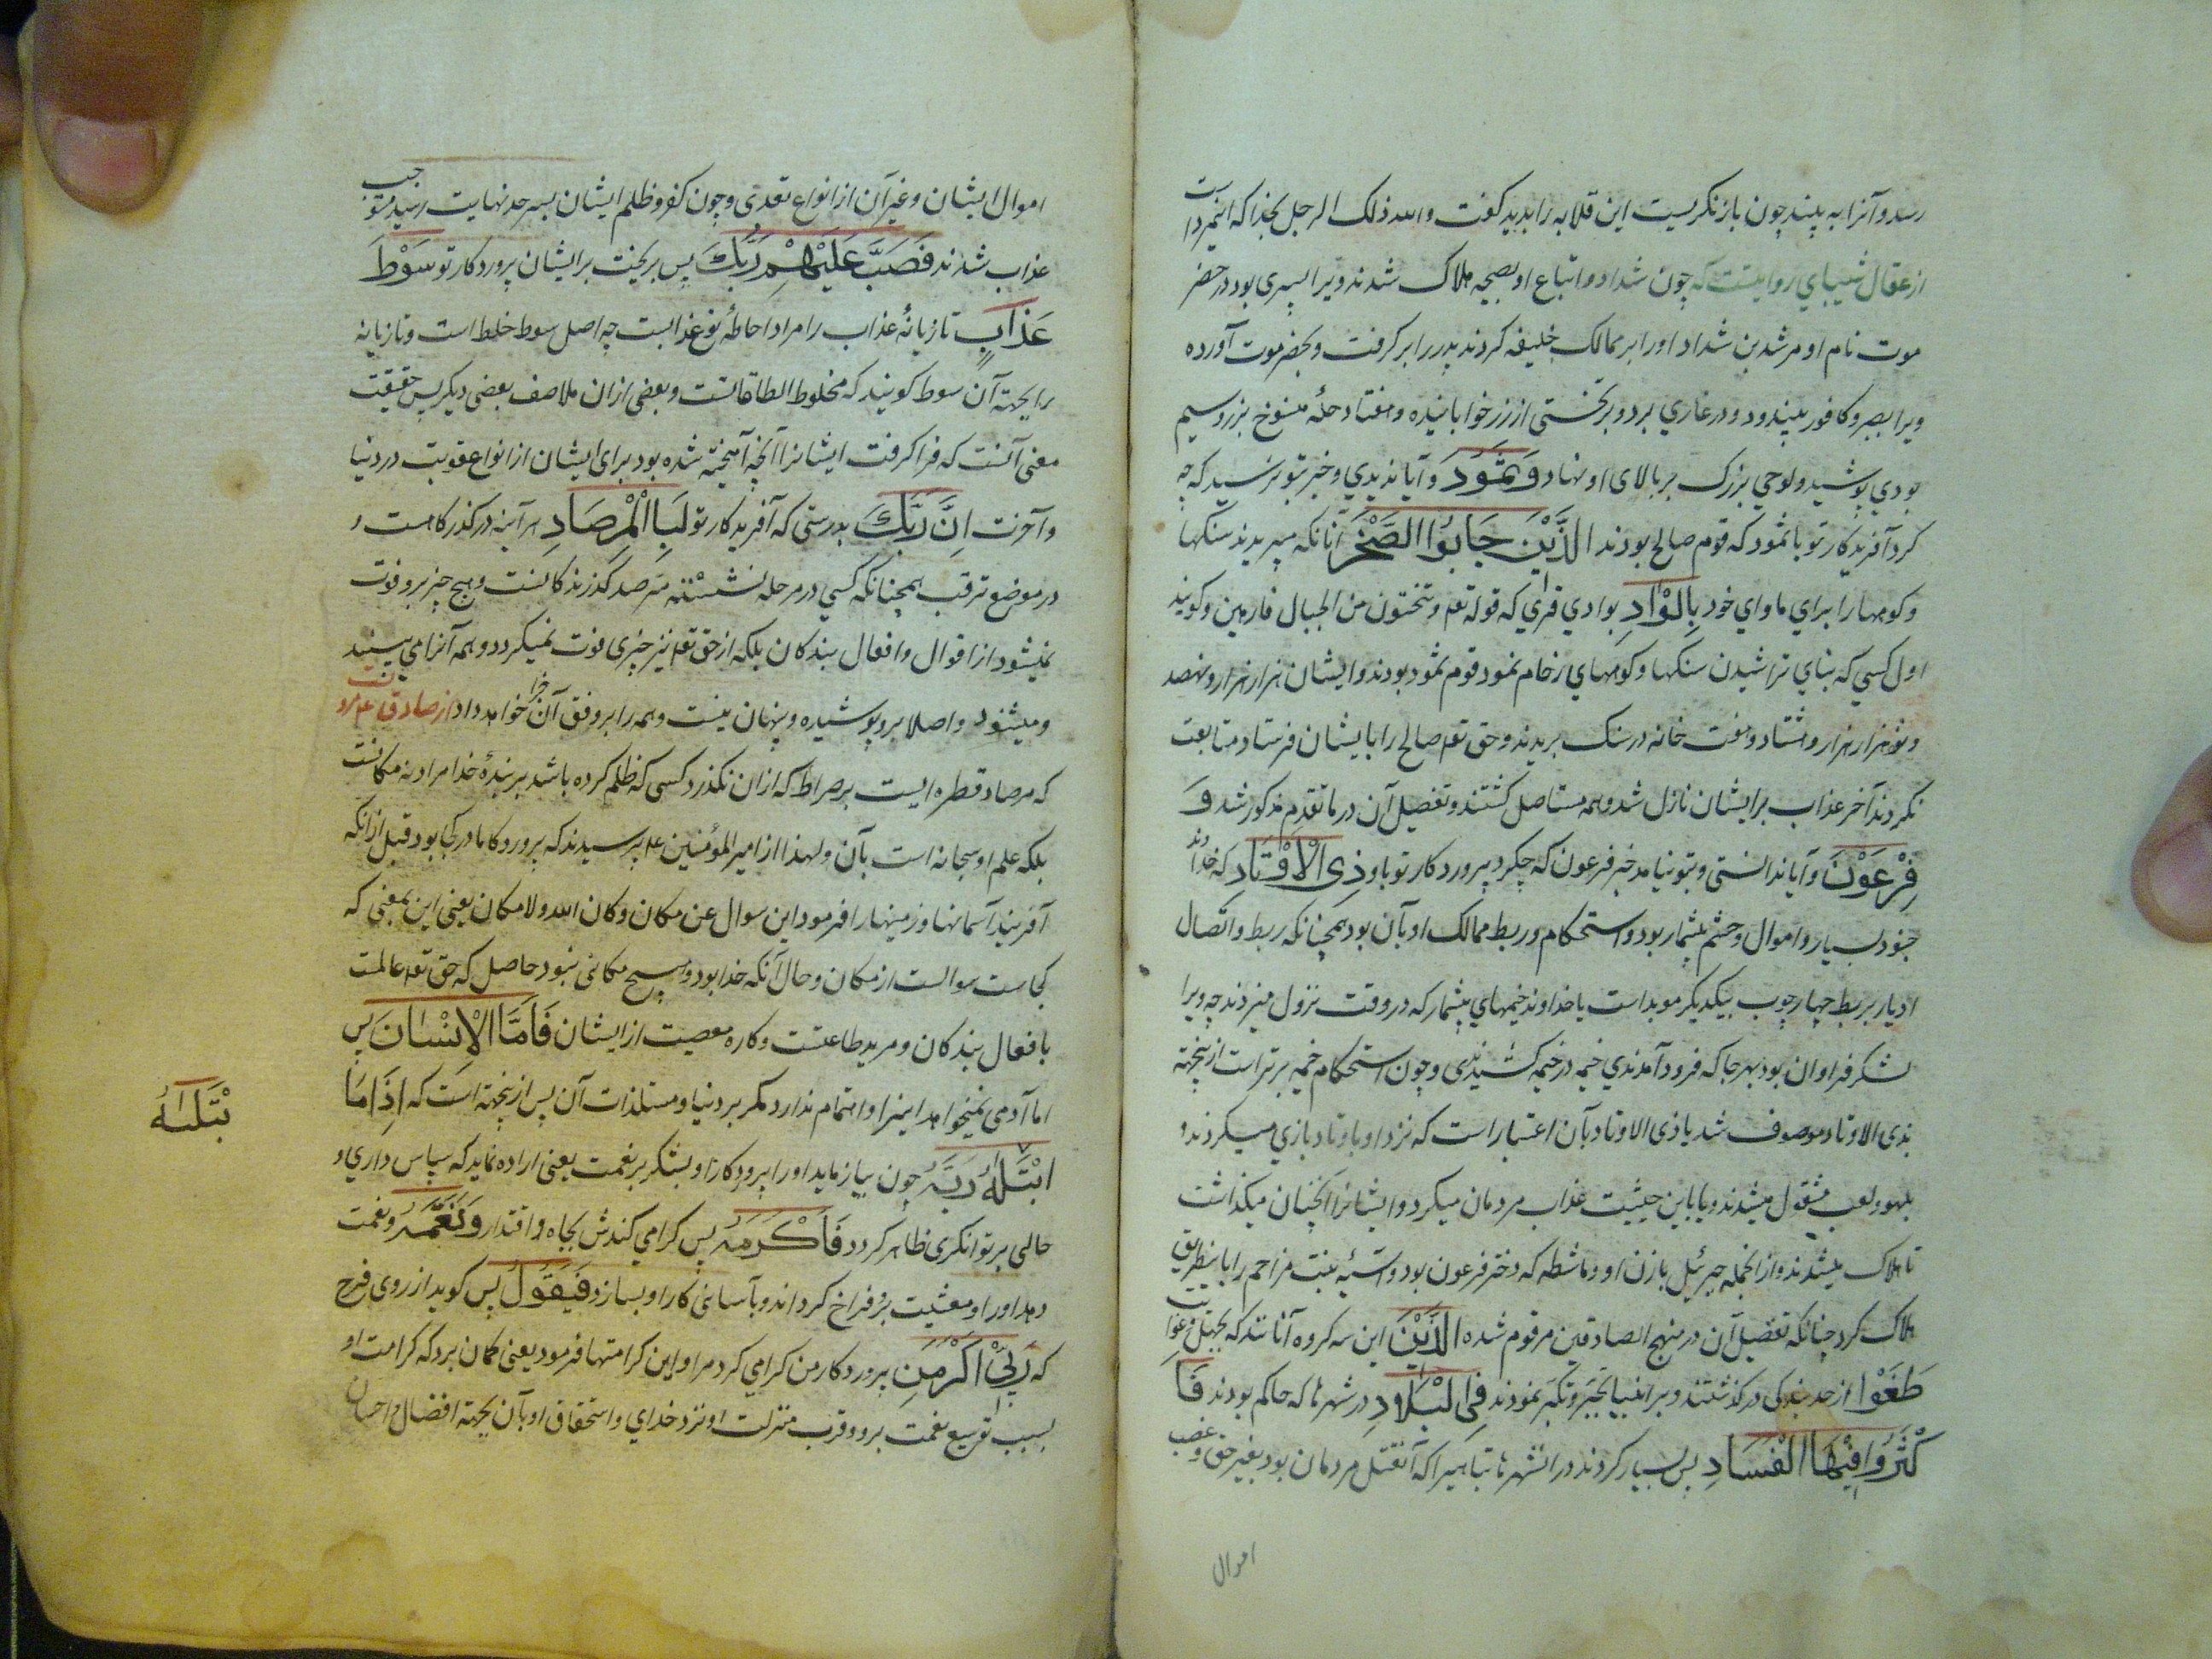 رسد و آنرا به بیند چون باز نکریست ابن قلابه را بدید کفت والله ذلک الرجل بخدا که اینمرد است
از عقال شیبانی روایتست که چون شداد و اتباع او بصیحه هلاک شدند ویرا پسری بود در حضر
موت نام او مرشد بن شداد او را بر ممالک خلیفه کردند پدر را بر کرفت و بحضرموت آورده
ویرا بصبر و کافور بیندود و در غاری برد و بر تختی از زر خوابانیده و هفتاد حلهٔ منسوج بزر و سیم
بودی پوشید و لوحی بزرک بر بالای او نهاد وَثَمُودَ و آیا ندیدی و خبر بتو نرسید که چه
کرد آفریدکار تو با ثمود که قوم صالح بودند الَّذِیْنَ جَابُوا الصَّخْرَ آنانکه میبریدند سنکها
و کوهها را برای ماوای خود بِالْوَادِ بوادی قری که قوله تعم وتنحتون من الجبال فارهین و کویند
اول کسی که بنای تراشیدن سنکها و کوههای رخام نمود قوم ثمود بودند و ایشان هزار هزار و نهصد
و نود هزار هزار و هشتاد و هفت خانه در سنک بریدند و حق تعم صالح را بایشان فرستاد متابعت
نکردند آخر عذاب بر ایشان نازل شد و همه مستاصل کشتند و تفصیل آن در ما تقدم مذکور شد وَ
فِرْعَوْنَ و آیا ندانستی و بتو نیامد خبر فرعون که چکرد پروردکار تو باو ذِی الْاَوْتَادِ که خداوند
جنود بسیار و اموال و حشم بیشمار بود و استحکام و ربط ممالک او بآن بود همچنانکه ربط و اتصال
او یار بربط چهار چوب بیکدیکر موبد است یا خداوند خیمهای بیشمار که در وقت نزول میزدند چه ویرا
لشکر فراوان بود بهر جا که فرود آمدندی خیمه در خیمه کشیدندی و چون استحکام خیمه برتراست ازینجهة
بذی الاوتاد موصوف شد یا ذی الاوتاد بآن اعتبار است که نزد او باوتاد بازی میکردند و
بلهو و لعب مشغول میشدند و یا باین حیثیت عذاب مردمان میکرد و ایشانرا آنچنان میکذاشت
تا هلاک میشدند و ازانجمله جبرئیل بازن او و ماشطه که دختر فرعون بود و آسیهٔ بنت مزاحم را باینطریق
هلاک کرد چنانکه تفضیل آن در منهج الصادقین مرقوم شده الَّذِیْنَ این سه کروه آنانند که بجهل و غوایت
طَغَوْا از حد بندکی در کذشتند و بر انبیا تجبر و تکبر نمودند فِی الْبِلَادِ در شهرها که حاکم بودند فَاَ
کْثَرُوا فِیْهَا الْفَسَادَ پس بسیار کردند در انشهرها تباهیرا که آنقتل مردمان بود بغیر حق و غصب
اموال
اموال ایشان و غیر آن از انواع تعدی و چون کفر و ظلم ایشان بسرحد نهایت رسید مستوجب
عذاب شدند فَصَبَّ عَلَیْهِمْ رَبُّکَ پس بریخت بر ایشان پروردکار تو سَوْطَ
عَذَابٍ تازیانهٔ عذاب را مراد احاطهٔ نوع عذابست چه اصل سوط خلط است و تازیانه
را بجهة آن سوط کویند که مخلوط الطاقاتست و بعضی از ان ملاصف بعضی دیکر پس حقیقت
معنی آنست که فرا کرفت ایشانرا آنچه آمیخته شده بود برای ایشان از انواع عقوبت در دنیا
و آخرت اِنَّ رَبَّکَ بدرستی که آفریدکار تو لَبِالْمِرْصَادِ هر آینه در کذرکاهست و
در موضع ترقب همچنانکه کسی در مرحله نشسته مترصد کذرندکانست و هیچ چیز برو فوت
نمیشود از اقوال و افعال بندکان بلکه از حق تعم نیز چیزی فوت نمیکردد و همه آنرا می بیند
و میشنود و اصلا برو پوشیده و پنهان نیست و همه را بر وفق آن جزا خواهد داد از صادق ع مرویست
که مرصاد قطره ایست بر صراط که ازان نکذرد کسی که ظلم کرده باشد بر بندهٔ خدا مراد نه مکانست
بلکه علم او سبحانه است بآن و لهذا از امیر المؤمنین ع پرسیدند که پروردکار ما در کجا بود قبل ازانکه
آفریند آسمانها و زمینها را فرمود این سوال عن مکان وکان الله ولا مکان یعنی این بمعنی که
کجاست سوالست از مکان و حال آنکه خدا بود و هیچ مکانی نبود حاصل که حق تعم عالمست
بافعال بندکان و مرید طاعتست و کاره معصیت از ایشان فَاَمَّا الْاِنْسَانُ پس
اما آدمی نمیخواهد اینرا و اهتمام ندارد مکر بر دنیا و مستلذات آن پس ازینجهة است که اِذَا مَا
ابْتَلٰهُ رَبُّهُ چون بیازماید او را پروردکار او بشکر بر نعمت یعنی اراده نماید که سپاس داری او
بْتَلٰهُ
حالی بر توانکری ظاهر کردد فَاَکْرَمَهُ پس کرامی کندش بجاه و اقتدار وَنَعَّمَهُ و نعمت
دهد او را و معیشت برو فراخ کرداند و بآسانی کار او بسازد فَیَقُولُ پس کوید از روی فرح
که رَبِّیْ اَکْرَمَنِ پروردکار من کرامی کرد مرا و این کرامتها فرمود یعنی کمان برد که کرامت او
بسبب توسیع نعمت برو و قرب منزلت او نزد خدای و استحقاق او بآن بجهة افضال و احسان